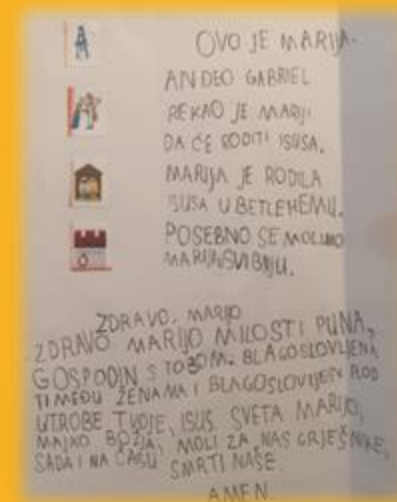 OVO JE MARIJA.
ANĐEO GABRIEL
REKAO JE MARIJI
DA ĆE RODITI ISUSA.
MARIJA JE RODILA
ISUSA U BETLEHEMU.
POSEBNO SE MOLIMO
MARIJI U SVIBNJU.
ZDRAVO, MARIJO
ZDRAVO MARIJO MILOSTI PUNA,
GOSPODIN S TOBOM. BLAGOSLOVLJENA
TI MEĐU ŽENAMA I BLAGOSLOVLJEN PLOD
UTROBE TVOJE, ISUS. SVETA MARIJO,
MAJKO BOŽJA, MOLI ZA NAS GRJEŠNIKE,
SADA I NA ČASU SMRTI NAŠE.
AMEN